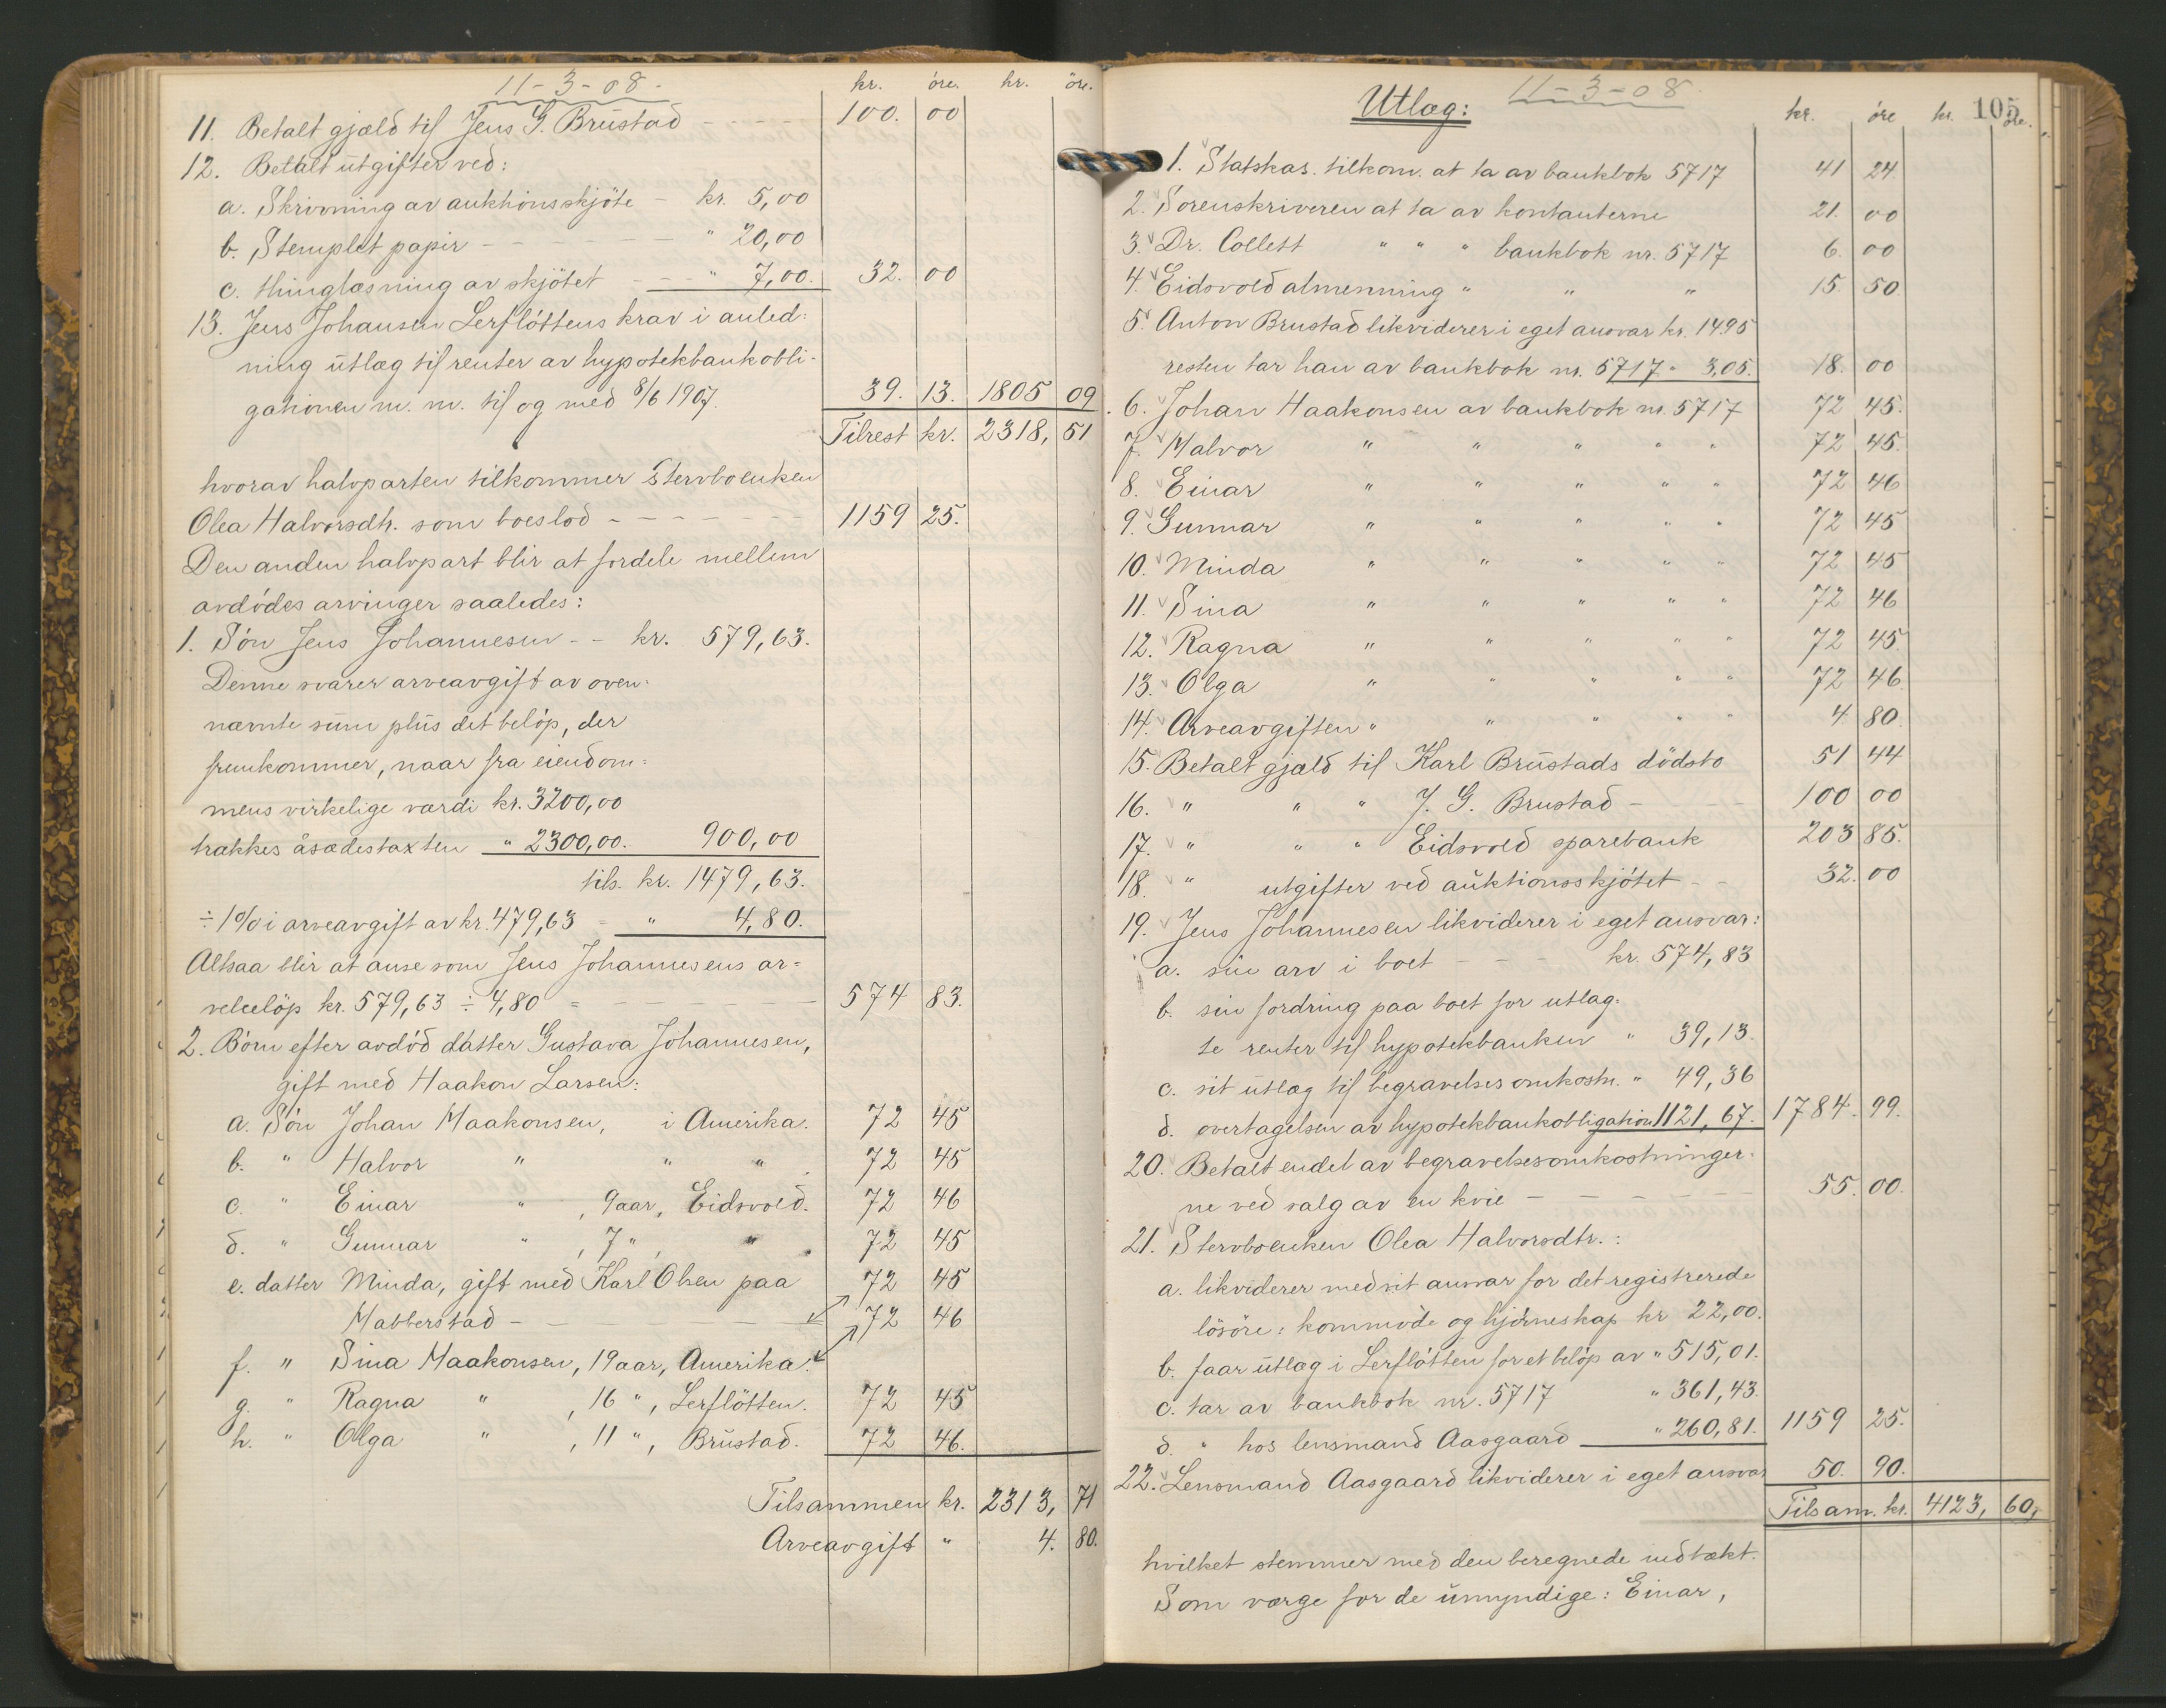 11-3-08.
kr. öre. kr. öre.
11. Betalt gjæld til Jens G. Brustad - - - - 100. 00
12. Betalt utgifter ved:
a. Skrivning av auktionsskjöte - kr. 5,00
b. Stemplet papir - - - - - - " 20,00
c. thinglæsning av skjötet - - - " 7,00. 32. 00
13. Jens Johansen Lerflöttens krav i anled:
ning utlæg til renter av hypotekbankobli-
gationen m. m. til og med 8/6 1907. 39. 13. 1805 09
Tilrest kr. 2318, 51
hvorav halvparten tilkommer Stervboenken
Olea Halvorsdtr. som boeslod - - - - - 1159 25.
Den anden halvpart blir at fordele mellem
avdödes arvinger saaledes:
1. Sön Jens Johannesen - - kr. 579,63.
Denne svarer arveavgift av oven:
nævnte sum plus det belöp, der
fremkommer, naar fra eiendom:
mens virkelige værdi kr. 3200,00
trækkes åsædestaxten " 2300,00. 900,00
tils. kr. 1479,63.
÷ 1% i arveavgift av kr. 479,63 = " 4,80.
Altsaa blir at anse som Jens Johannesens ar=
vebelöp kr. 579,63 ÷ 4,80 = - - - - - - - 574 83.
2. Börn efter avdöd datter Gustava Johannesen,
gift med Haakon Larsen:
a. Sön Johan Haakonsen, i Amerika. 72 45
b. " Halvor " " " . 72 45
c. " Einar " , 9 aar, Eidsvold. 72 46
d. " Gunnar " , 7 " , " . 72 45
e. datter Minda, gift med Karl Olsen paa 72 45
Habberstad - - - - - - - - 72 46
f. " Sina Haakonsen, 19 aar, Amerika.
g. " Ragna " , 16 " , Lerflötten. 72 45
h. " Olga " , 11 " , Brustad. 72 46.
Tilsammen kr. 2313, 71
Arveavgift " 4. 80.
11-3-08.
Utlæg:
105
kr. öre kr. öre.
1. Statskas. tilkom. at ta av bankbok 5717 41 24.
2. Sorenskriveren at ta av kontanterne 21. 00
3. Dr. Collett " " " bankbok nr. 5717 6. 00
4. Eidsvold almenning " " " 15. 50.
5. Anton Brustad likviderer i eget ansvar kr. 14.95
resten tar han av bankbok nr. 5717. " 3,05. 18. 00
6. Johan Haakonsen av bankbok nr. 5717 72 45.
7. Halvor " " " " " 72 45.
8. Einar " " " " " 72 46
9. Gunnar " " " " " 72 45
10. Minda " " " " " 72 45
11. Sina " " " " " 72 46
12. Ragna " " " " " 72 45.
13. Olga " " " " " 72 46.
14. Arveavgiften " " " " " 4. 80.
15. Betalt gjæld til Karl Brustads dödsbo 51 44
16. " " " J. G. Brustad - - - - 100 00
17. " " " Eidsvold sparebank 203 85.
18. " utgifter ved auktionsskjötet - - 32. 00
19. Jens Johannesen likviderer i eget ansvar:
a. sin arv i boet - - - kr. 574,83
b. sin fordring paa boet for utlag:
te renter til hypotekbanken " 39,13.
c. sit utlæg til begravelsesomkostn. " 49,36
d. overtagelsen av hypotekbankobligation 1121,67. 1784. 99.
20. Betalt endel av begravelsesomkostninger:
ne ved salg av en kvie - - - - - - 55. 00.
21. Stervboenken Olea Halvorsdtr.:
a. likviderer med sit ansvar for det registrerede
lösöre: kommode og hjörneskap kr 22,00.
b. faar utlæg i Lerflötten for et belöp av " 515,01.
c. tar av bankbok nr. 5717 " 361,43.
d. " hos lensmand Aasgaard " 260,81. 1159 25.
22. Lensmand Aasgaard likviderer i eget ansvar 50. 90.
Tilsam. kr. 4123, 60,
hvilket stemmer med den beregnede indtækt.
Som værge for de umyndige: Einar,